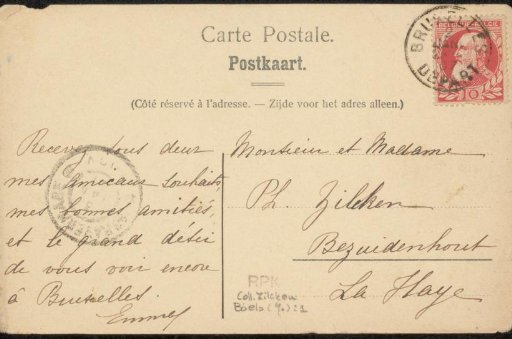 Carte Postale.
Postkaart.
(Côté réservé à l'adresse. — Zijde voor het adres alleen.)
BRUXELLES
DÉPART
10
Recevez tous deux
mes amicaux souhaits,
mes bonnes amitiés,
et le grand désir
de vous voir encore
à Bruxelles.
Monsieur et Madame
Ph. Zilcken
Bezuidenhout
La Haye
RPK
Coll. Zilcken